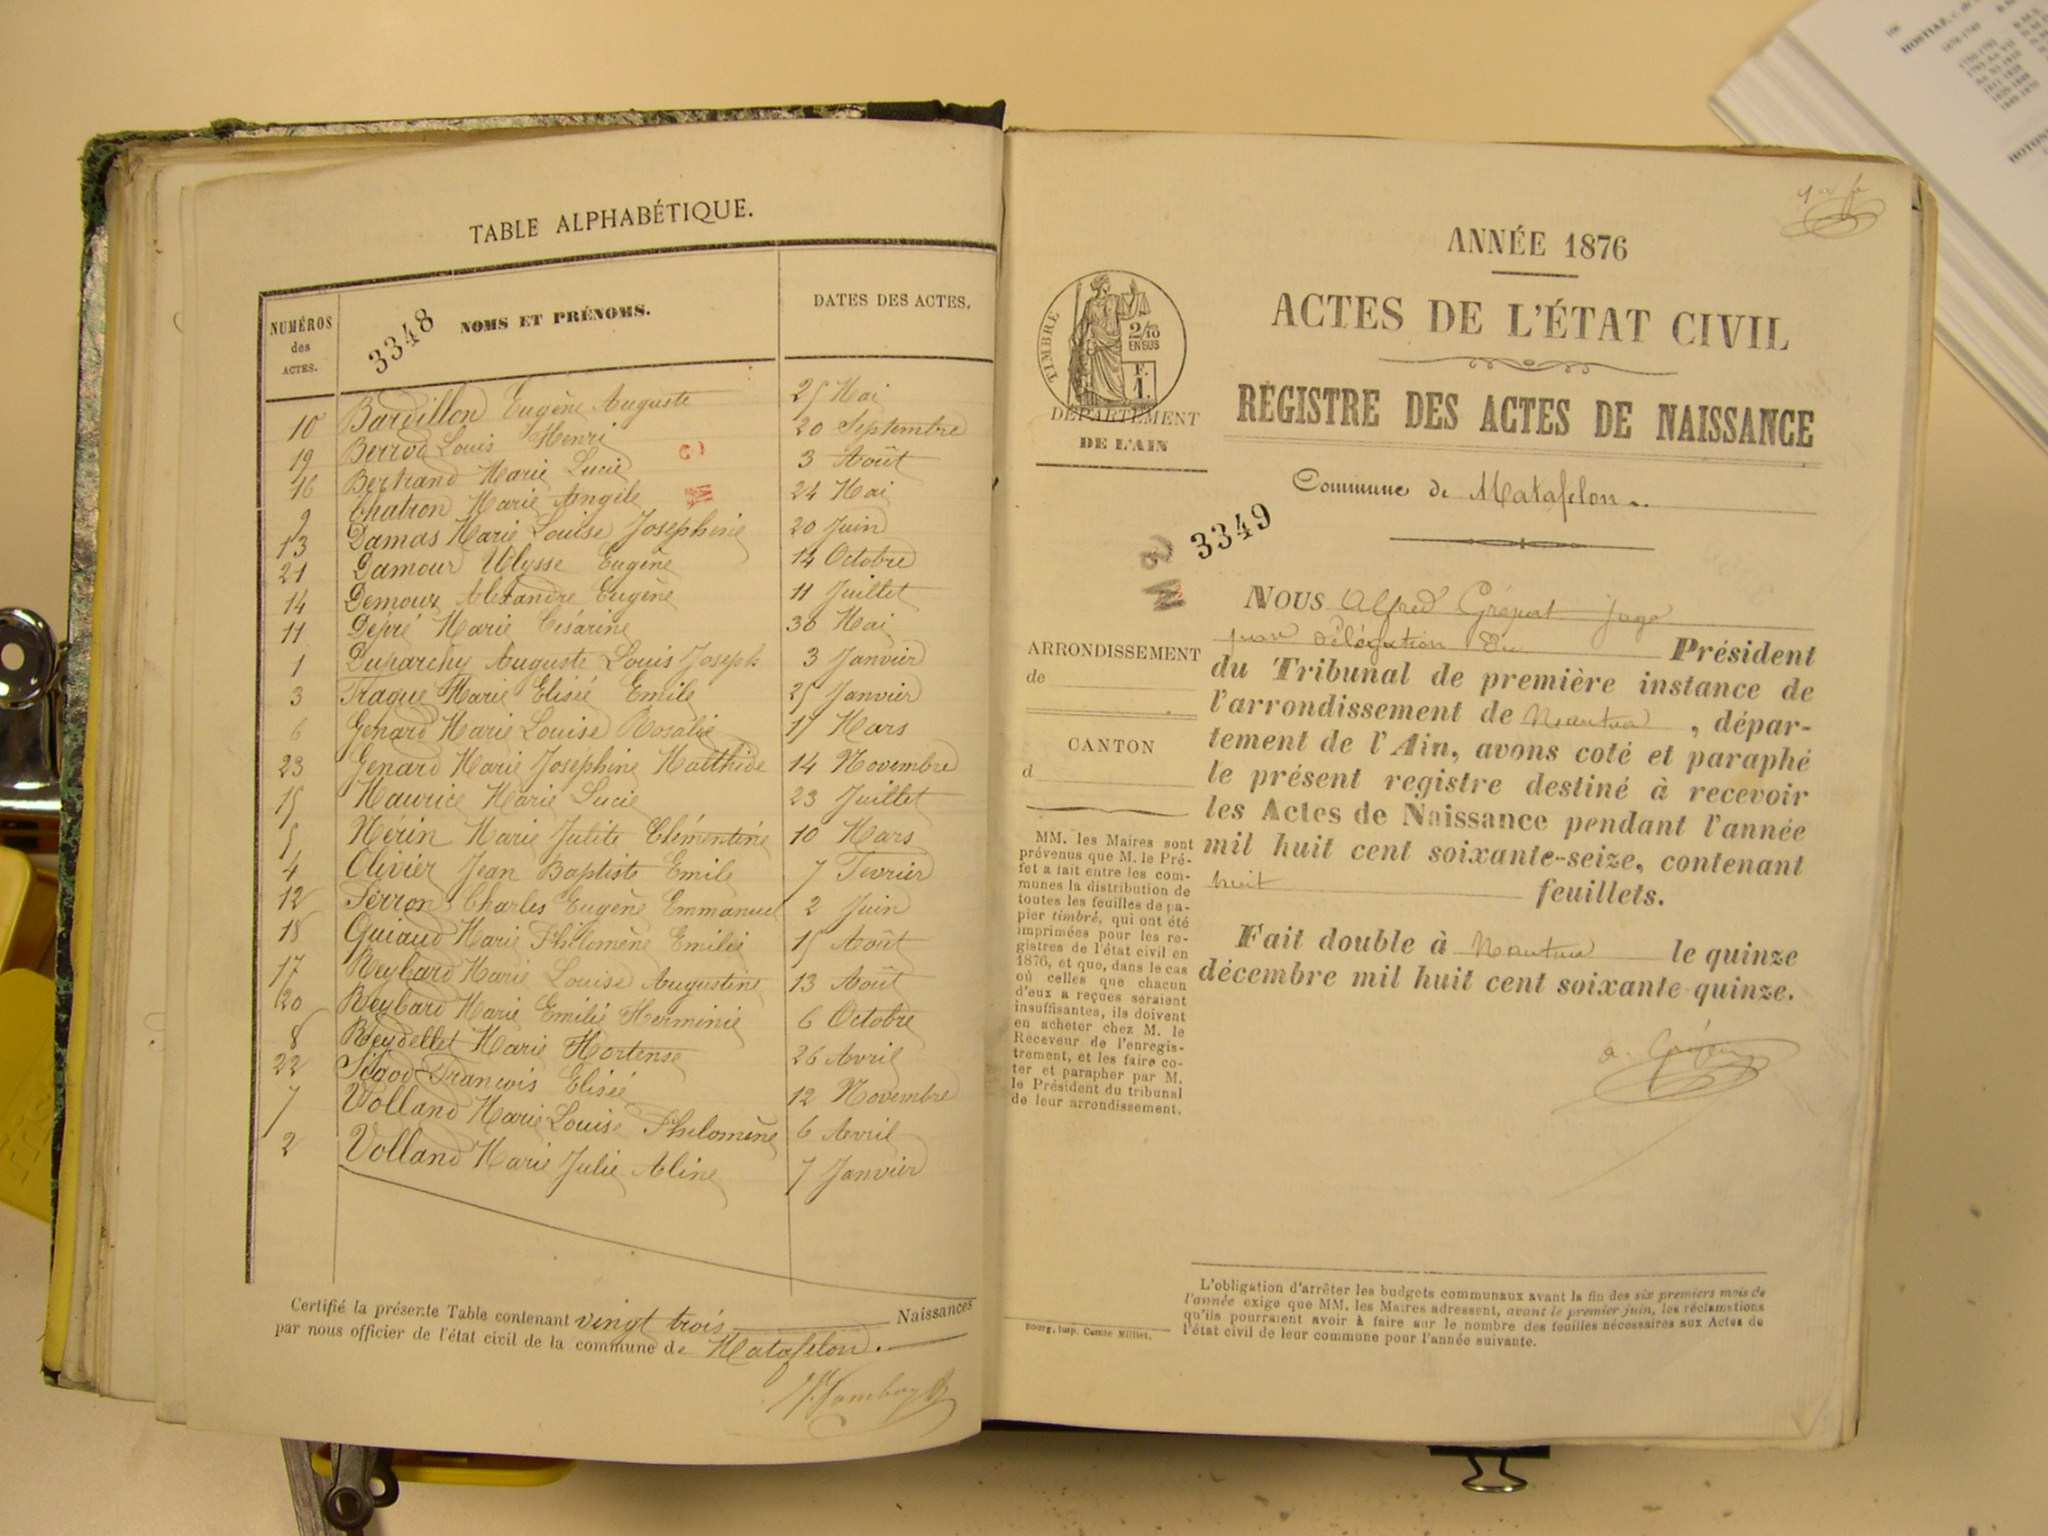 TABLE ALPHABÉTIQUE.
NUMÉROS des ACTES.
3348
NOMS ET PRÉNOMS.
DATES DES ACTES.
10 Bardillon Eugène Auguste 25 Mai
19 Berrod Louis Henri 20 Septembre
16 Bertrand Marie Lucie 3 Août
9 Chatron Marie Angèle 24 Mai
13 Damas Marie Louise Josephine 20 Juin
21 Damour Ulysse Eugène 14 Octobre
14 Demoux Alexandre Eugène 11 Juillet
11 Dépré Marie Césarine 30 Mai
1 Duparchy Auguste Louis Joseph 3 Janvier
3 Marie Elisée Emile 25 Janvier
6 Genard Marie Louise Rosalie 17 Mars
23 Genard Marie Josephine Matthide 14 Novembre
15 Maurice Marie Lucie 23 Juillet
5 Nérin Marie Julite Clémentine 10 Mars
4 Olivier Jean Baptiste Emile 7 Fevrier
12 Perron Charles Eugène Emmanuel 2 Juin
18 Guiaud Marie Philomène Emilie 15 Août
17 Reybard Marie Louise Augustine 13 Août
20 Reybard Marie Emilie Herminie 6 Octobre
8 Reydellet Marie Hortense 26 Avril
22 François Elisée 12 Novembre
7 Volland Marie Louise Philomène 6 Avril
2 Volland Marie Julie Aline 7 Janvier
Certifié la présente Table contenant vingt trois Naissances
par nous officier de l'état civil de la commune de Matafelon.
ANNÉE 1876
ACTES DE L'ÉTAT CIVIL
REGISTRE DES ACTES DE NAISSANCE
TIMBRE
2/10
EN SUS
F.
1.
DÉPARTEMENT
DE L'AIN
Commune de Matafelon.
3349
ARRONDISSEMENT
de
CANTON
d
MM. les Maires sont
prévenus que M. le Pré-
fet a fait entre les com-
munes la distribution de
toutes les feuilles de pa-
pier timbré, qui ont été
imprimées pour les re-
gistres de l'état civil en
1876, et que, dans le cas
où celles que chacun
d'eux a reçues seraient
insuffisantes, ils doivent
en acheter chez M. le
Receveur de l'enregis-
trement, et les faire co-
ter et parapher par M.
le Président du tribunal
de leur arrondissement.
Bourg, imp. Comte Milliet.
NOUS Alfred Grépat Juge
par délégation du Président
du Tribunal de première instance de
l'arrondissement de Nantua, dépar-
tement de l'Ain, avons coté et paraphé
le présent registre destiné à recevoir
les Actes de Naissance pendant l'année
mil huit cent soixante-seize, contenant
huit feuillets.
Fait double à Nantua le quinze
décembre mil huit cent soixante-quinze.
L'obligation d'arrêter les budgets communaux avant la fin des six premiers mois de
l'année exige que MM. les Maires adressent, avant le premier juin, les réclamations
qu'ils pourraient avoir à faire sur le nombre des feuilles nécessaires aux Actes de
l'état civil de leur commune pour l'année suivante.